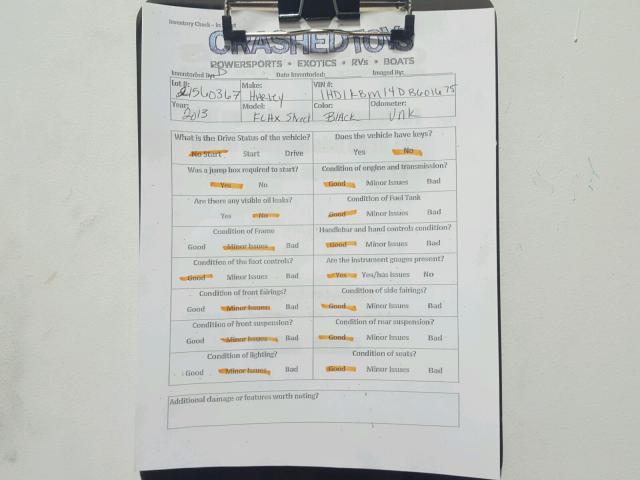 Inventory Check - In
CRASHEDTOYS
POWERSPORTS • EXOTICS • RVs • BOATS
Inventoried By: Date Inventoried: Imaged By:
Lot #: Make: VIN #:
21560367 Harley 1HD1KBM14DB601675
Year: Model: Color: Odometer:
2013 FLHX Street Black UNK
What is the Drive Status of the vehicle? Does the vehicle have keys?
No Start Start Drive Yes No
Was a jump box required to start? Condition of engine and transmission?
Yes No Good Minor Issues Bad
Are there any visible oil leaks? Condition of Fuel Tank
Yes No Good Minor Issues Bad
Condition of Frame Handlebar and hand controls condition?
Good Minor Issues Bad Good Minor Issues Bad
Condition of the foot controls? Are the instrument gauges present?
Good Minor Issues Bad Yes Yes/has issues No
Condition of front fairings? Condition of side fairings?
Good Minor Issues Bad Good Minor Issues Bad
Condition of front suspension? Condition of rear suspension?
Good Minor Issues Bad Good Minor Issues Bad
Condition of lighting? Condition of seats?
Good Minor Issues Bad Good Minor Issues Bad
Additional damage or features worth noting?